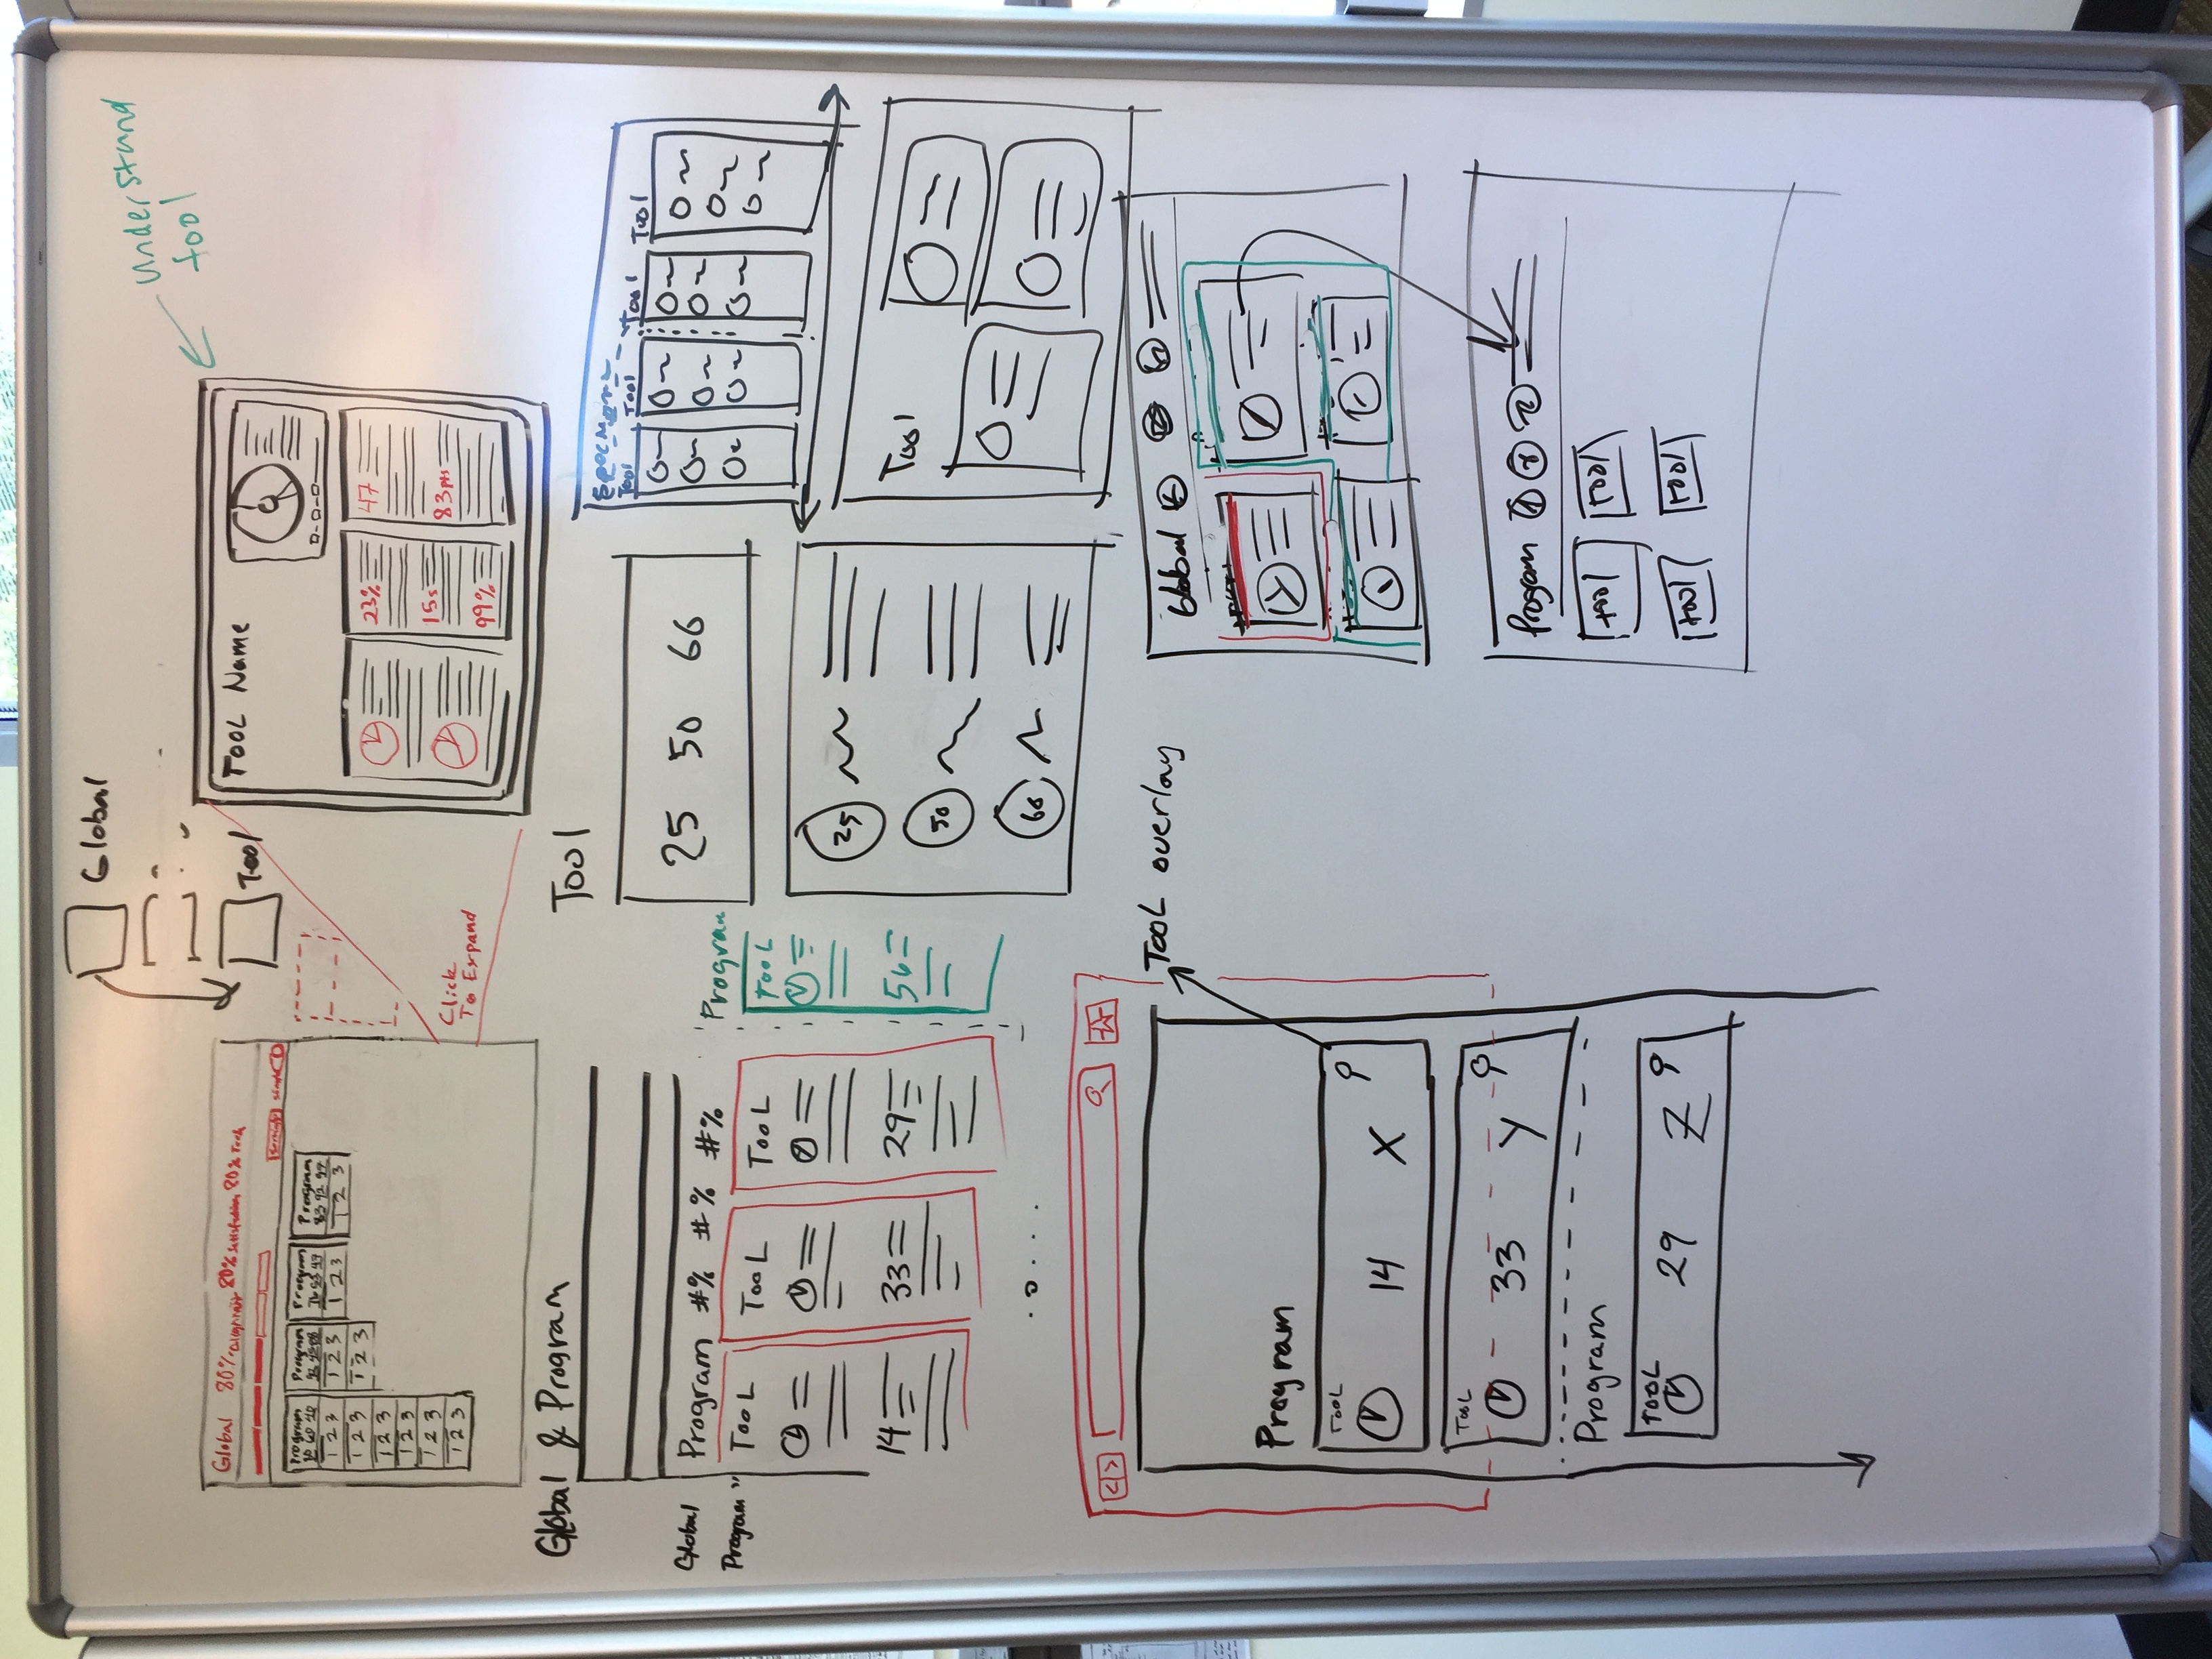 Global
Tool
understand
tool
Global 80% Alignment 80% Satisfaction 20% Tools
Program
Program
Program
Program
80 60 40
76 53 47
83 92 97
1 2 3
1 2 3
1 2 3
1 2 3
1 2 3
1 2 3
1 2 3
1 2 3
1 2 3
1 2 3
Click
To Expand
TOOL Name
23%
15s
99%
47
83pts
Global & Program
Global
Program
Program #% #% #%
TOOL
14
TOOL
33
TOOL
29
Program
TOOL
56
Tool
25 50 66
25
50
66
Tool
Tool
Tool
Tool
Tool
< >
TOOL overlay
Program
TOOL
14 X
TOOL
33 Y
Program
TOOL
29 Z
Global
Program
tool
tool
tool
tool